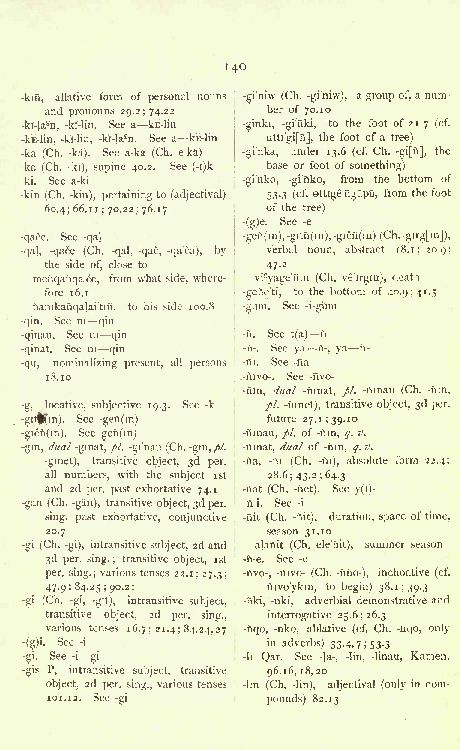 140
-kın̄, allative form of personal nouns
and pronouns 29.2; 74.22
See a—kı-lin
See a—kı-lin
-ka (Ch. -kä). See a-ka (Ch. e-kä)
-ka (Ch. -kı), supine 40.2. See (-t)k
-ki. See a-ki
-kin (Ch. -kin), pertaining to (adjectival)
60.4; 66.11; 70.22; 76.17
-qač. See -qal
-qal, -qače (Ch. -qal, -qač, -qača), by
the side of, close to
from what side, where-
fore 16.1
to his side 100.8
-qin. See nı—qin
-qinau. See nı—qin
-qinat. See nı—qin
-qu, nominalizing present, all persons
18.10
-g, locative, subjective 19.3. See -k
See gen̄(ın)
See gen̄(ın)
-gın, dual -gınat, pl. -gınau (Ch. -gın, pl.
-gınet), transitive object, 3d per.
all numbers, with the subject 1st
and 2d per. past exhortative 74.1
-gan (Ch. -gän), transitive object, 3d per.
sing. past exhortative, conjunctive
20.7
-gi (Ch. -gi), intransitive subject, 2d and
3d per. sing.; transitive object, 1st
per. sing.; various tenses 22.1; 27.3;
47.9; 84.25; 90.21
-gi (Ch. -gi, -gıt), intransitive subject,
transitive object, 2d per. sing.,
various tenses 16.7; 21.4; 84.24, 27
-(g)i. See -i
-gi. See -i—gi
-gis P, intransitive subject, transitive
object, 2d per. sing., various tenses
101.12. See -gi
-giniw (Ch. -giniw), a group of, a num-
ber of 70.10
-ginkı, -gin̄ki, to the foot of 21.7 (cf.
the foot of a tree)
-gin̄ka, under 13.6 (cf. Ch. -gi[n̄], the
base or foot of something)
-gin̄ko, -gin̄ko, from the bottom of
53.3 from the foot
of the tree)
-(g)e. See -e
verbal noun, abstract 18.1; 20.9;
47.2
death
to the bottom of 20.9; 41.5
-gum. See -i-gum
-n̄. See t(a)—n̄
-n̄-. See ya—n̄-, ya—n̄-
-n̄ı. See -n̄a
-n̄ıvo-. See -n̄vo-
-n̄ın, dual -n̄ınat, pl. -n̄ınau (Ch. -n̄ın,
pl. -n̄ınet), transitive object, 3d per.
future 27.1; 39.10
-n̄ınau, pl. of -n̄ın, q. v.
-n̄ınat, dual of -n̄ın, q. v.
-n̄a, -n̄ı (Ch. -n̄ı), absolute form 22.4;
28.6; 43.2; 64.3
-n̄at (Ch. -n̄et). See y(ı)-
-n̄i. See -i
-n̄it (Ch. -n̄it), duration, space of time,
season 31.10
alan̄it (Ch. elen̄it), summer season
-n̄-e. See -e
-n̄vo-, -n̄ıvo- (Ch. -n̄n̄o-), inchoative (cf.
n̄ıvo'ykın, to begin) 38.1; 39.3
-n̄ki, -nki, adverbial demonstrative and
interrogative 25.6; 26.3
-n̄qo, -nko, ablative (cf. Ch. -nqo, only
in adverbs) 33.4, 7; 53.3
-lı- Qar. See -la-, -lin, -linau, Kamen.
96.16, 18, 20
-lın (Ch. -lin), adjectival (only in com-
pounds) 82.13